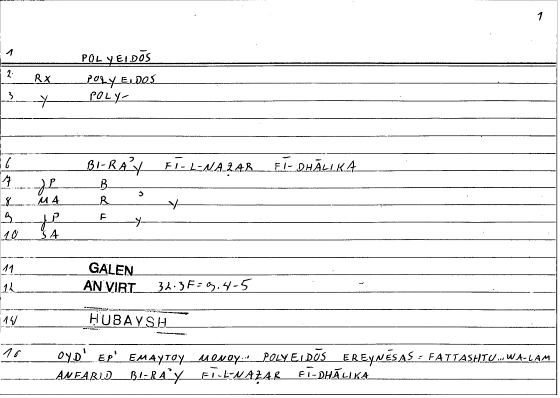 1
1 POLYEIDŌS
2 RX POLYEIDOS
3 Y POLY-
6 BI-RAʾY FĪ-L-NAẒAR FĪ-DHĀLIKA
7 JP B
8 MA R ʾ Y
9 JP F Y
10 JA
11 GALEN
12 AN VIRT 32.3F=9.4-5
14 HUBAYSH
16 OYD' EP' EMAYTOY MONOY... POLYEIDŌS EREYNĒSAS = FATTASHTU...WA-LAM
ANFARID BI-RAʾY FĪ-L-NAẒAR FĪ-DHĀLIKA